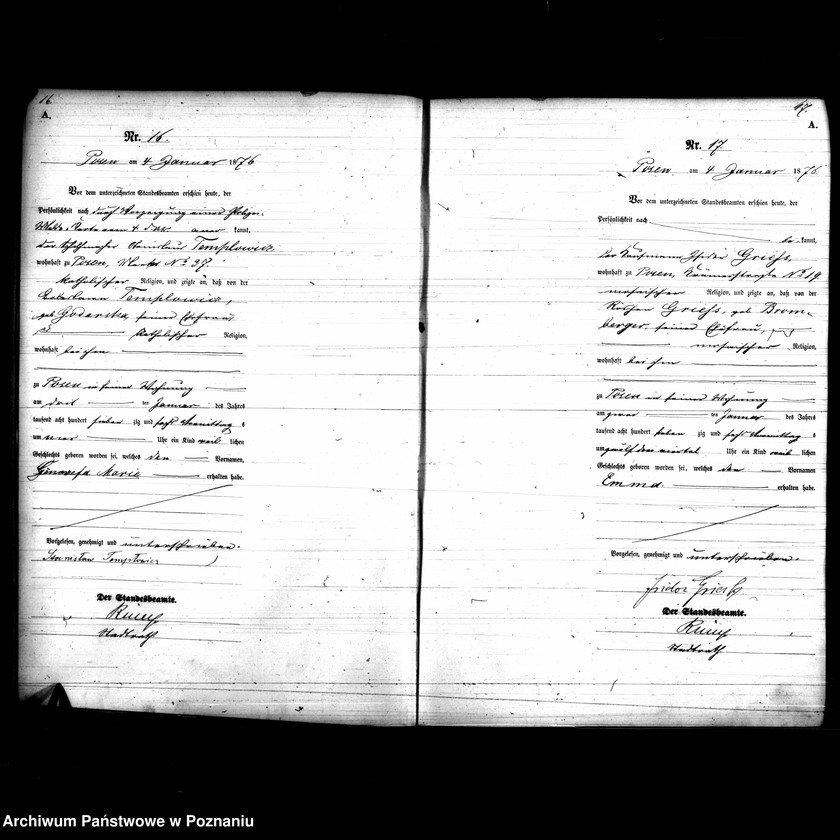 16.
A.
Nr. 16.
Posen am 4 Januar 1876
Vor dem unterzeichneten Standesbeamten erschien heute, der
Persönlichkeit nach durch
kannt,
der Stanislaus Templowicz
wohnhaft zu Posen, No 37.
katholischer Religion, und zeigte an, daß von der
Templowicz,
geb seiner Ehefrau
katholischer Religion,
wohnhaft bei ihm
zu Posen in seiner Wohnung
am drei ten Januar des Jahres
tausend acht hundert sieben zig und sechs Vormittag s
um vier Uhr ein Kind weib lichen
Geschlechts geboren worden sei, welches den Vornamen
Genowefa Marie erhalten habe.
Vorgelesen, genehmigt und unterschrieben.
Stanislaw Templowicz
Der Standesbeamte.
Stadtrath
17.
A.
Nr. 17
Posen am 4 Januar 1876
Vor dem unterzeichneten Standesbeamten erschien heute, der
Persönlichkeit nach
be kannt,
der Kaufmann Isidor Griess,
wohnhaft zu Posen, No 19
mosaischer Religion, und zeigte an, daß von der
Griess, geb Brom-
berger seiner Ehefrau,
mosaischer Religion,
wohnhaft bei ihm
zu Posen in seiner Wohnung
am zwei ten Januar des Jahres
tausend acht hundert sieben zig und sechs Vormittag s
um zwölf drei viertel Uhr ein Kind weib lichen
Geschlechts geboren worden sei, welches den Vornamen
Emma erhalten habe.
Vorgelesen, genehmigt und unterschrieben.
Isidor Griess
Der Standesbeamte.
Stadtrath
Archiwum Państwowe w Poznaniu